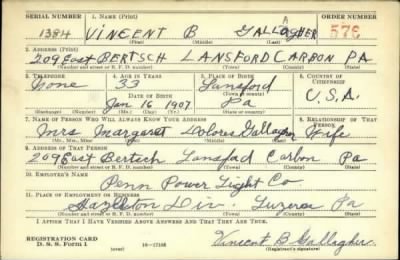 SERIAL NUMBER 1. NAME (Print) ORDER NUMBER
1384 VINCENT B GALLAGHER 576
(First) (Middle) (Last)
2. ADDRESS (Print)
209 East BERTSCH LANSFORD CARBON PA
(Number and street or R. F. D. number) (Town) (County) (State)
3. TELEPHONE 4. AGE IN YEARS 5. PLACE OF BIRTH 6. COUNTRY OF CITIZENSHIP
None 33 Lansford
DATE OF BIRTH (Town or county)
Jan 16 1907 Pa U.S.A.
(Exchange) (Number) (Mo.) (Day) (Yr.) (State or country)
7. NAME OF PERSON WHO WILL ALWAYS KNOW YOUR ADDRESS 8. RELATIONSHIP OF THAT PERSON
Mrs Margaret Dolores Gallagher Wife
(Mr., Mrs., Miss) (First) (Middle) (Last)
9. ADDRESS OF THAT PERSON
209 East Bertsch Lansford Carbon Pa
(Number and street or R. F. D. number) (Town) (County) (State)
10. EMPLOYER'S NAME
Penn Power Light Co
11. PLACE OF EMPLOYMENT OR BUSINESS
Hazleton Div. Luzerne Pa
(Number and street or R. F. D. number) (Town) (County) (State)
I AFFIRM THAT I HAVE VERIFIED ABOVE ANSWERS AND THAT THEY ARE TRUE.
REGISTRATION CARD
D. S. S. Form 1 (over) 16-17105 Vincent B Gallagher
(Registrant's signature)